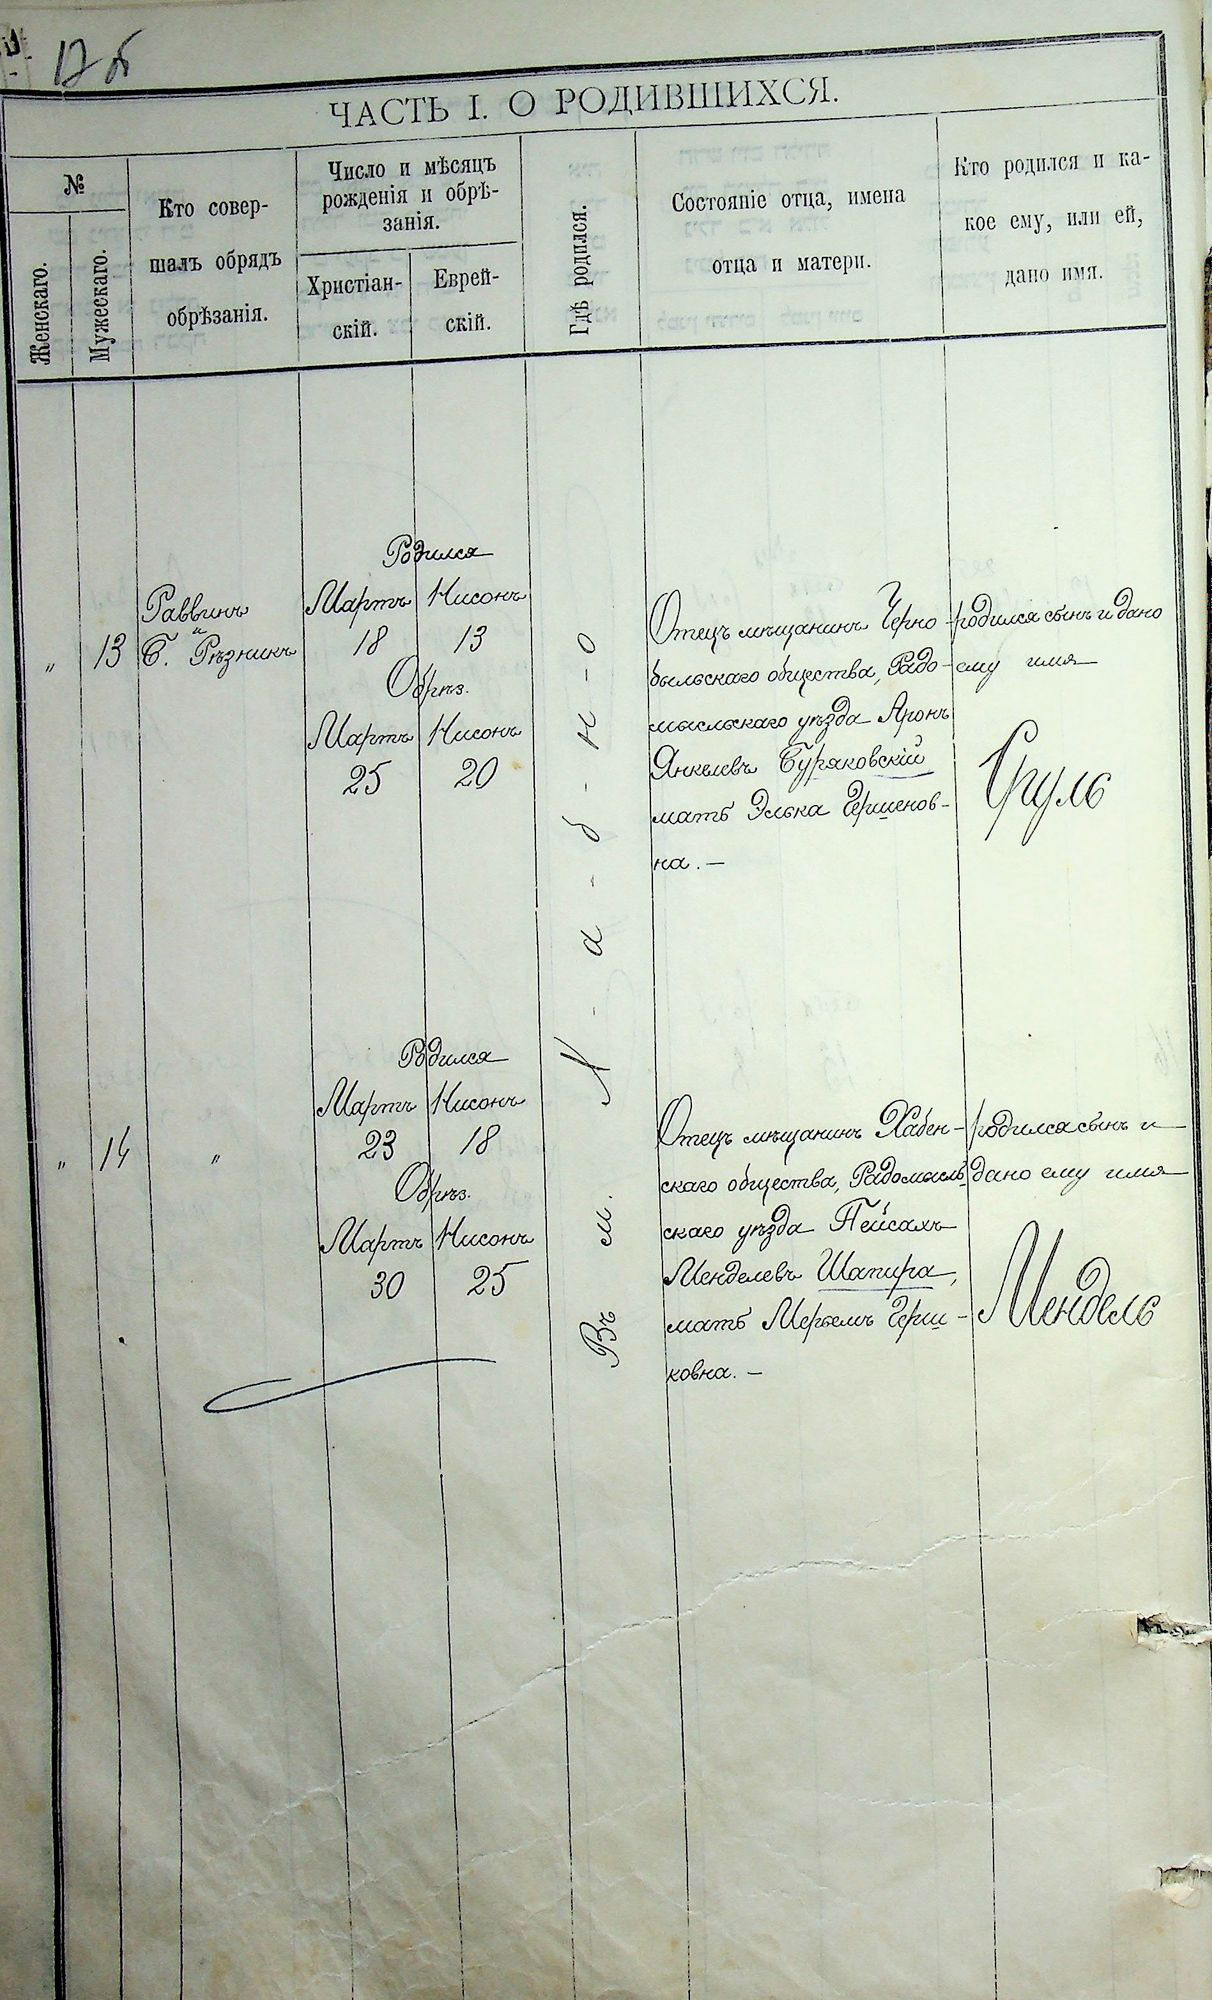 17 об
ЧАСТЬ I. О РОДИВШИХСЯ.
№
Женскаго.
Мужескаго.
Кто совер-
шалъ обрядъ
обрѣзанія.
Число и мѣсяцъ
рожденія и обрѣ-
занія.
Христіан-
скій.
Еврей-
скій.
Гдѣ родился.
Состояніе отца, имена
отца и матери.
Кто родился и ка-
кое ему, или ей,
дано имя.
"
13
Раввинъ
и
Б. Рѣзникъ
Родился
Мартъ Нисонъ
18 13
Обрѣз.
Мартъ Нисонъ
25 20
Въ м. Х-а-б-н-о
Отецъ мѣщанинъ Черно-
быльскаго общества, Радо-
мысльскаго уѣзда Аронъ
Янкелевъ Буряковскій
мать Элька Гершенов-
на. —
родился сынъ и дано
ему имя
Сруль
"
14
"
Родился
Мартъ Нисонъ
23 18
Обрѣз.
Мартъ Нисонъ
30 25
Отецъ мѣщанинъ Хабен-
скаго общества, Радомысль-
скаго уѣзда Пейсахъ
Менделевъ Шапира,
мать Мерьемъ Герш-
ковна. —
родился сынъ и
дано ему имя
Мендель